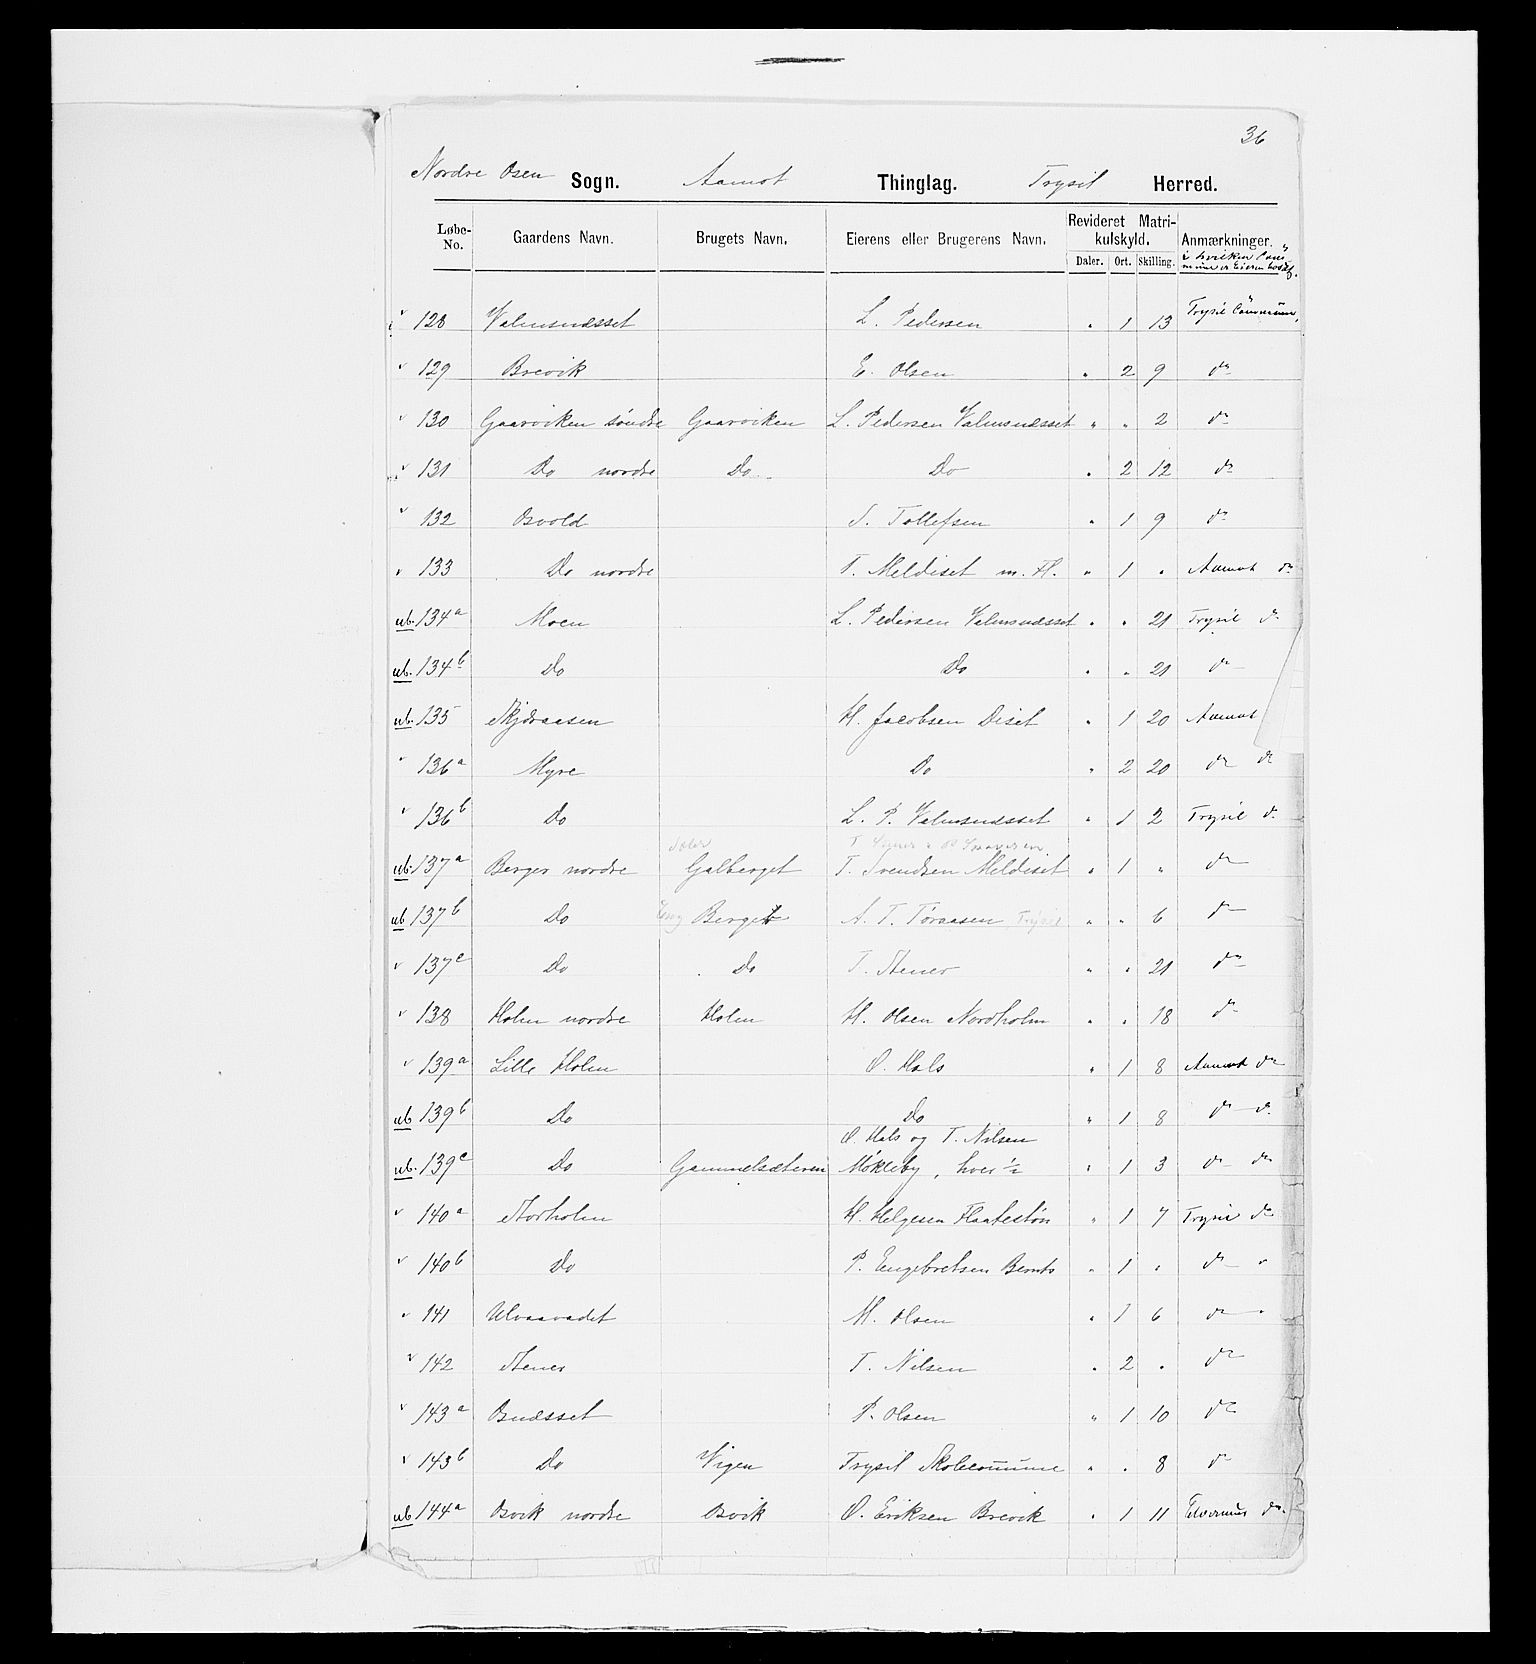 36
Nordre Osen Sogn. Aamot Thinglag. Trysil Herred.
Løbe-No. Gaardens Navn. Brugets Navn. Eierens eller Brugerens Navn. Revideret Matrikulskyld. Anmærkninger.
Daler. Ort. Skilling.
128 Valmsnæsset L. Pedersen " 1 13 Trysil Commune
129 Brevik E. Olsen " 2 9 do
130 Gaarviken søndre Gaarviken L. Pedersen Valmsnæsset " " 2 do
131 Do nordre Do Do " 2 12 do
132 Osvold S. Tollefsen " 1 9 do
133 Do nordre T. Meldiset m. Fl. " 1 " Aamot do
ub. 134a Moen L. Pedersen Valmsnæsset " " 21 Trysil do
ub. 134b Do Do " " 21 do
ub. 135 Skjæraasen H. Jacobsen Diset " 1 20 Aamot
136a Myre Do " 2 20 do do
136b Do L. P. Valmsnæsset " 1 2 Trysil do
ub. 137a Berger nordre Galberget T. Svendsen Meldiset " 1 " do
ub 137b Do Eng Berget A. T. Føraasen, Trysil " " 6 do
137c Do Do T. Stener " " 21 do
138 Holm nordre Holm H. Olsen Nordholm " " 18 do
139a Lille Holm O. Hals " 1 8 Aamot do
ub 139b Do Do " 1 8 do do
ub. 139c Do Gammelsæteren O. Hals og T. Nilsen
Møkleby, hver ½ " 1 3 do do
140a Storholm H. Helgesen Flaatestøn " 1 7 Trysil do
140b Do P. Engebretsen Bernts " 1 " do "
141 Ulvaavadet M. Olsen " 1 6 do "
142 Stener T. Nilsen " 2 " do
143a Osnæsset P. Olsen " 1 10 do
143b Do Vigen Trysil Skolecommune " " 8 do
ub 144a Osvik nordre Osvik O. Eriksen Brevik " 1 11 Elverum do